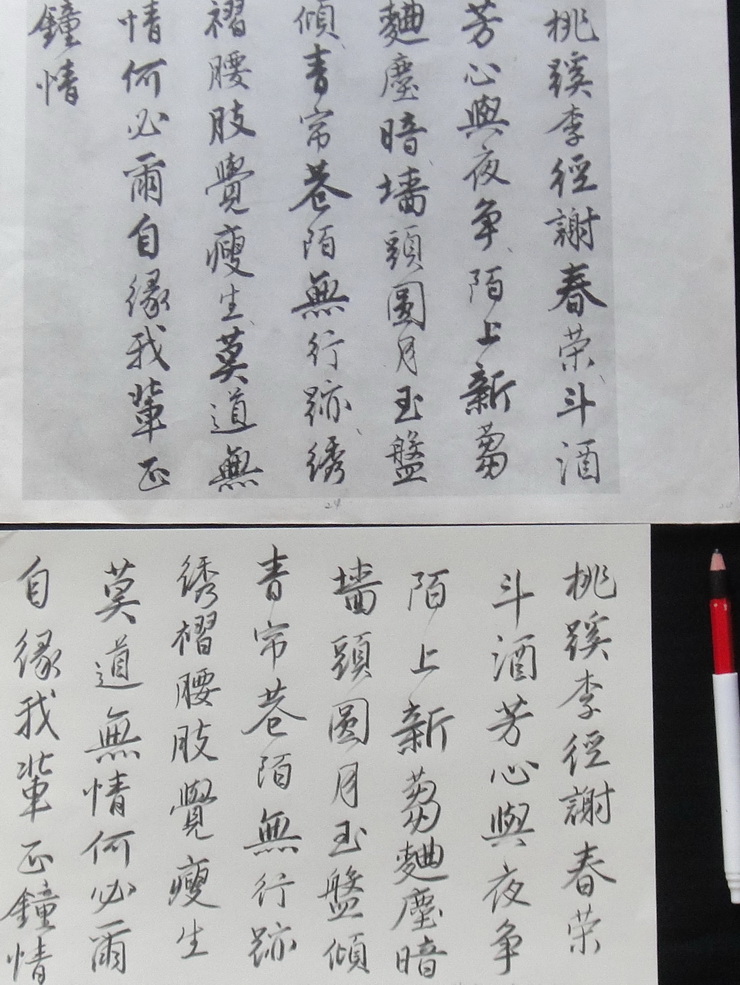 桃蹊李徑謝春荣斗酒
芳心與夜争陌上新蒭
麯塵暗墻頭圓月玉盤
傾青帘巷陌無行跡绣
褶腰肢覺瘦生莫道無
情何必爾自缘我輩正
鐘情
24
桃蹊李徑謝春荣
斗酒芳心與夜争
陌上新蒭麯塵暗
墻頭圓月玉盤傾
青帘巷陌無行跡
绣褶腰肢覺瘦生
莫道無情何必爾
自缘我輩正鐘情